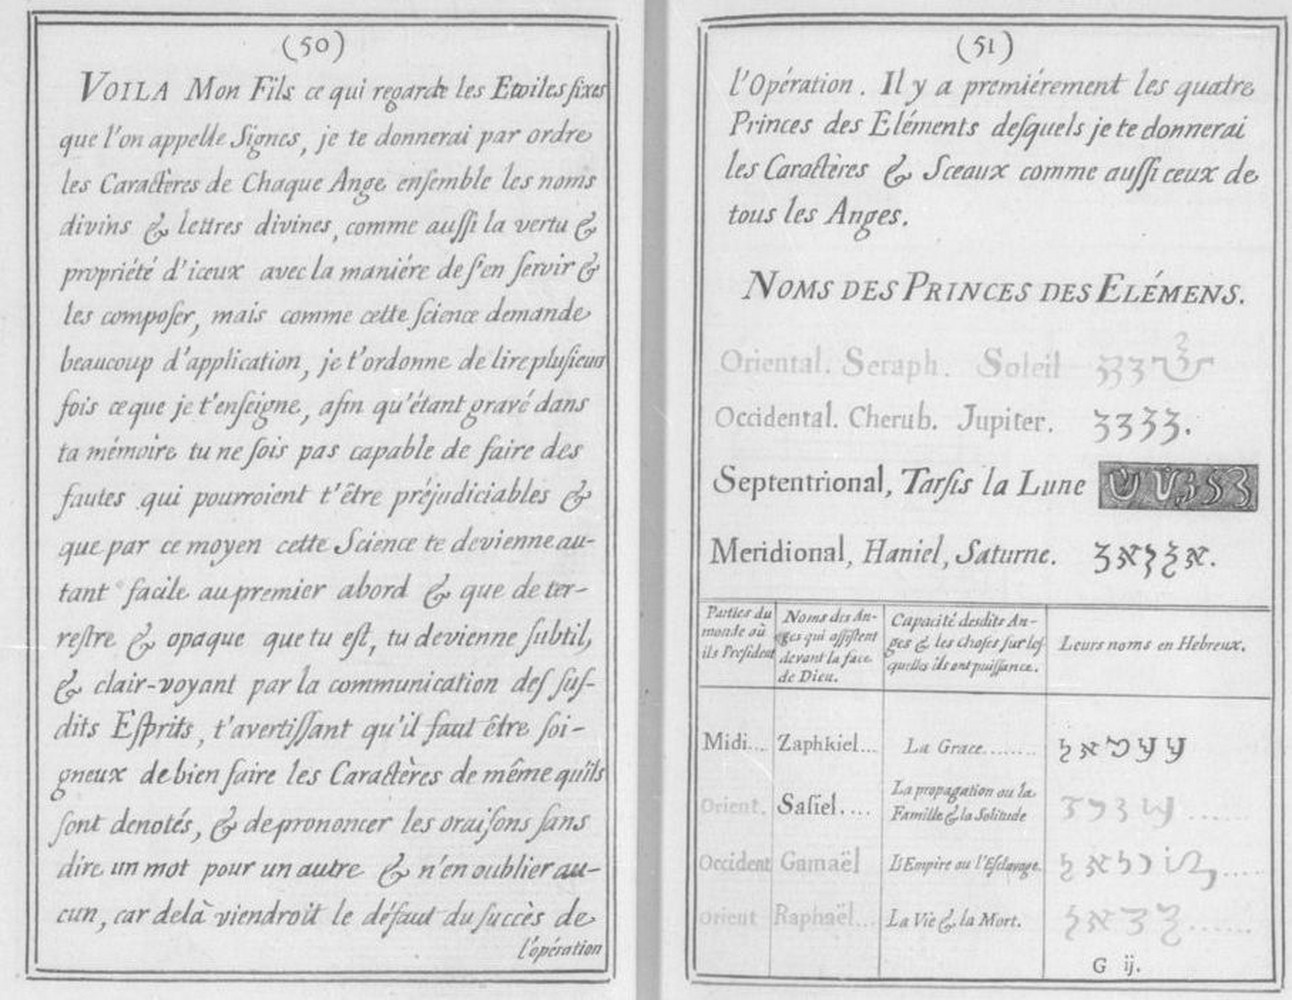 (50)
VOILA Mon Fils ce qui regarde les Etoiles fixes
que l'on appelle Signes, je te donnerai par ordre
les Caractères de Chaque Ange enſemble les noms
divins & lettres divines, comme auſſi la vertu &
propriété d'iceux avec la maniére de ſ'en ſervir &
les compoſer, mais comme cette ſcience demande
beaucoup d'application, je t'ordonne de lire pluſieurs
fois ce que je t'enſeigne, afin qu'étant gravé dans
ta mémoire tu ne ſois pas capable de faire des
fautes qui pourroient t'être préjudiciables &
que par ce moyen cette Science te devienne au-
tant facile au premier abord & que de ter-
reſtre & opaque que tu eſt, tu devienne ſubtil,
& clair-voyant par la communication deſ ſuſ-
dits Eſprits, t'avertiſſant qu'il faut être ſoi-
gneux de bien faire les Caractères de même qu'ils
ſont denotés, & de prononcer les oraiſons ſans
dire un mot pour un autre & n'en oublier au-
cun, car delà viendroit le défaut du ſuccès de
l'opération
(51)
l'Opération. Il y a premiérement les quatre
Princes des Eléments deſquels je te donnerai
les Caractères & Sceaux comme auſſi ceux de
tous les Anges.
NOMS DES PRINCES DES ELÉMENS.
Oriental. Seraph. Soleil
Occidental. Cherub. Jupiter.
Septentrional, Tarſis la Lune
Meridional, Haniel, Saturne.
Parties du
monde où
ils Preſident
Noms des An-
ges qui aſſiſtent
devant la face
de Dieu.
Capacité desdits An-
ges & les choſes ſur leſ-
quelles ils ont puiſſance.
Leurs noms en Hebreux.
Midi... Zaphkiel... La Grace........
Orient. Saſiel.... La propagation ou la
Famille & la Solitude
Occident Gamaël L'Empire ou l'Eſclavage.
Orient Raphaël... La Vie & la Mort.
G ij.